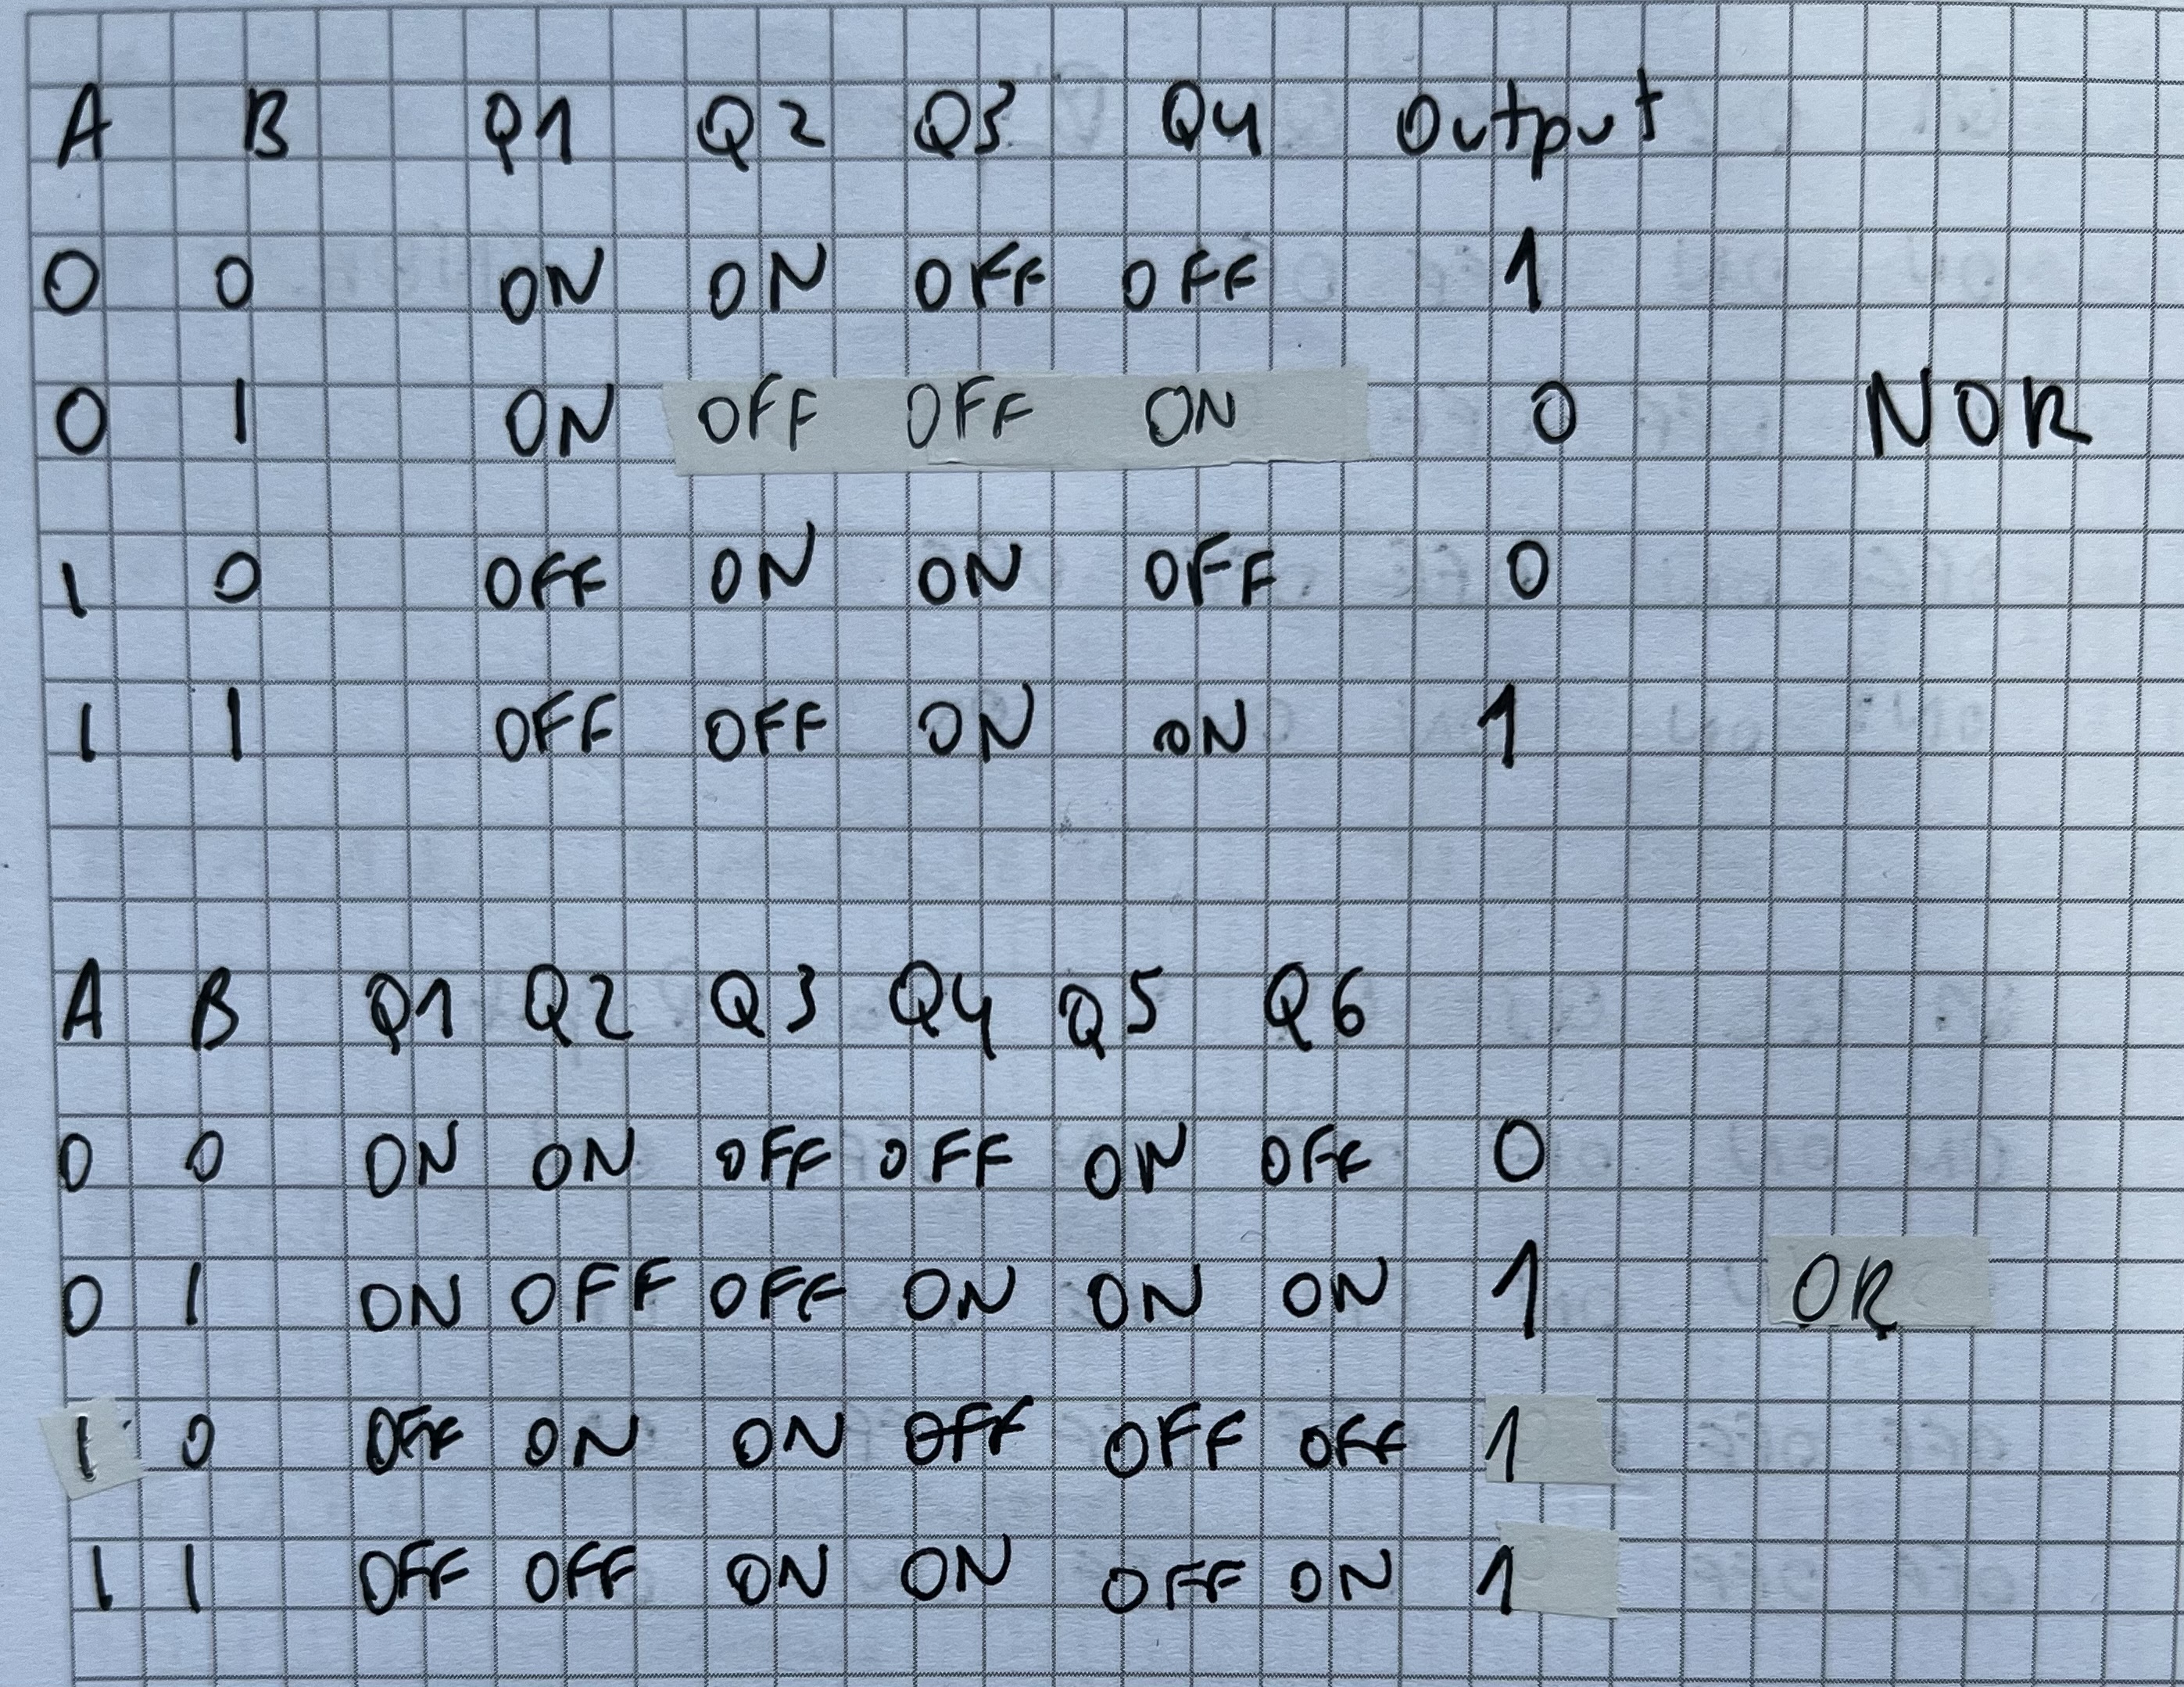 A B Q1 Q2 Q3 Q4 Output
0 0 ON ON OFF OFF 1
0 1 ON OFF OFF ON 0 NOR
1 0 OFF ON ON OFF 0
1 1 OFF OFF ON ON 1
A B Q1 Q2 Q3 Q4 Q5 Q6
0 0 ON ON OFF OFF ON OFF 0
0 1 ON OFF OFF ON ON ON 1 OR
1 0 OFF ON ON OFF OFF OFF 1
1 1 OFF OFF ON ON OFF ON 1